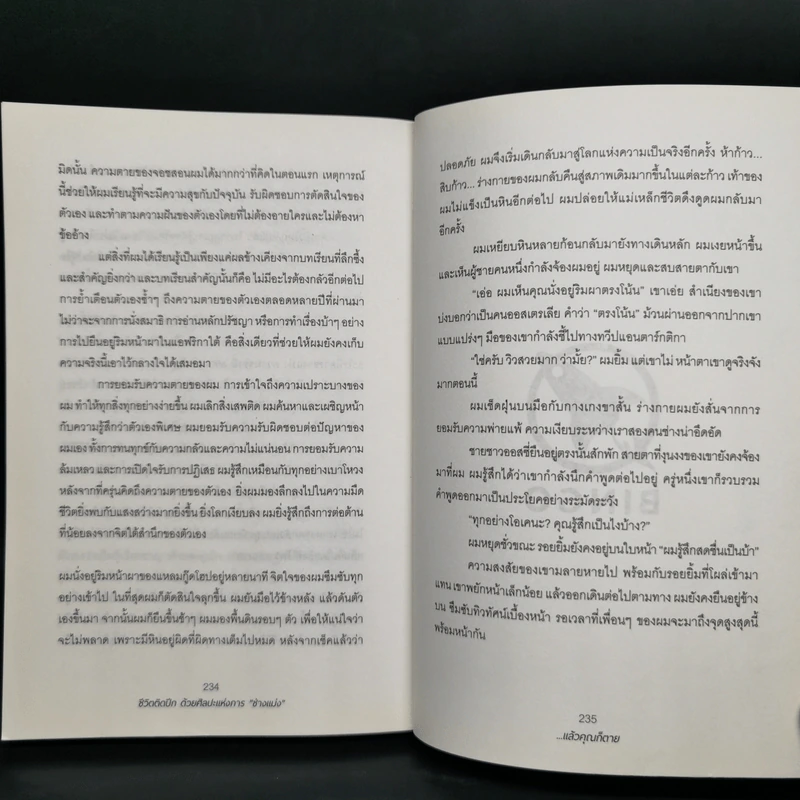 มิดนั้น ความตายของจอชสอนผมได้มากกว่าที่คิดในตอนแรก เหตุการณ์
นี้ช่วยให้ผมเรียนรู้ที่จะมีความสุขกับปัจจุบัน รับผิดชอบการตัดสินใจของ
ตัวเอง และทำตามความฝันของตัวเองโดยที่ไม่ต้องอายใครและไม่ต้องหา
ข้ออ้าง
แต่สิ่งที่ผมได้เรียนรู้เป็นเพียงแค่ผลข้างเคียงจากบทเรียนที่ลึกซึ้ง
และสำคัญยิ่งกว่า และบทเรียนสำคัญนั้นก็คือ ไม่มีอะไรต้องกลัวอีกต่อไป
การย้ำเตือนตัวเองซ้ำๆ ถึงความตายของตัวเองตลอดหลายปีที่ผ่านมา
ไม่ว่าจะจากการนั่งสมาธิ การอ่านหลักปรัชญา หรือการทำเรื่องบ้าๆ อย่าง
การไปยืนอยู่ริมหน้าผาในแอฟริกาใต้ คือสิ่งเดียวที่ช่วยให้ผมยังคงเก็บ
ความจริงนี้เอาไว้กลางใจได้เสมอมา
การยอมรับความตายของผม การเข้าใจถึงความเปราะบางของ
ผม ทำให้ทุกสิ่งทุกอย่างง่ายขึ้น ผมเลิกสิ่งเสพติด ผมค้นหาและเผชิญหน้า
กับความรู้สึกว่าตัวเองพิเศษ ผมยอมรับความรับผิดชอบต่อปัญหาของ
ผมเอง ทั้งการทนทุกข์กับความกลัวและความไม่แน่นอน การยอมรับความ
ล้มเหลว และการเปิดใจรับการปฏิเสธ ผมรู้สึกเหมือนกับทุกอย่างเบาโหวง
หลังจากที่ครุ่นคิดถึงความตายของตัวเอง ยิ่งผมมองลึกลงไปในความมืด
ชีวิตยิ่งพบกับแสงสว่างมากยิ่งขึ้น ยิ่งโลกเงียบลง ผมยิ่งรู้สึกถึงการต่อต้าน
ที่น้อยลงจากจิตใต้สำนึกของตัวเอง
ผมนั่งอยู่ริมหน้าผาของแหลมกู๊ดโฮปอยู่หลายนาที จิตใจของผมซึมซับทุก
อย่างเข้าไป ในที่สุดผมก็ตัดสินใจลุกขึ้น ผมยันมือไว้ข้างหลัง แล้วดันตัว
เองขึ้นมา จากนั้นผมก็ยืนขึ้นช้าๆ ผมมองพื้นดินรอบๆ ตัว เพื่อให้แน่ใจว่า
จะไม่พลาด เพราะมีหินอยู่ผิดที่ผิดทางเต็มไปหมด หลังจากเช็คแล้วว่า
234
ชีวิตติดปีก ด้วยศิลปะแห่งการ "ช่างแม่ง"
ปลอดภัย ผมจึงเริ่มเดินกลับมาสู่โลกแห่งความเป็นจริงอีกครั้ง ห้าก้าว...
สิบก้าว... ร่างกายของผมกลับคืนสู่สภาพเดิมมากขึ้นในแต่ละก้าว เท้าของ
ผมไม่แข็งเป็นหินอีกต่อไป ผมปล่อยให้แม่เหล็กชีวิตดึงดูดผมกลับมา
อีกครั้ง
ผมเหยียบหินหลายก้อนกลับมายังทางเดินหลัก ผมเงยหน้าขึ้น
และเห็นผู้ชายคนหนึ่งกำลังจ้องผมอยู่ ผมหยุดและสบสายตากับเขา
"เอ่อ ผมเห็นคุณนั่งอยู่ริมผาตรงโน้น" เขาเอ่ย สำเนียงของเขา
บ่งบอกว่าเป็นคนออสเตรเลีย คำว่า "ตรงโน้น" ม้วนผ่านออกจากปากเขา
แบบแปร่งๆ มือของเขากำลังชี้ไปทางทวีปแอนตาร์กติกา
"ใช่ครับ วิวสวยมาก ว่ามั้ย?" ผมยิ้ม แต่เขาไม่ หน้าตาเขาดูจริงจัง
มากตอนนี้
ผมเช็ดฝุ่นบนมือกับกางเกงขาสั้น ร่างกายผมยังสั่นจากการ
ยอมรับความพ่ายแพ้ ความเงียบระหว่างเราสองคนช่างน่าอึดอัด
ชายชาวออสซี่ยืนอยู่ตรงนั้นสักพัก สายตาที่งุนงงของเขายังคงจ้อง
มาที่ผม ผมรู้สึกได้ว่าเขากำลังนึกคำพูดต่อไปอยู่ ครู่หนึ่งเขาก็รวบรวม
คำพูดออกมาเป็นประโยคอย่างระมัดระวัง
"ทุกอย่างโอเคนะ? คุณรู้สึกเป็นไงบ้าง?"
ผมหยุดชั่วขณะ รอยยิ้มยังคงอยู่บนใบหน้า "ผมรู้สึกสดชื่นเป็นบ้า"
ความสงสัยของเขามลายหายไป พร้อมกับรอยยิ้มที่โผล่เข้ามา
แทน เขาพยักหน้าเล็กน้อย แล้วออกเดินต่อไปตามทาง ผมยังคงยืนอยู่ข้าง
บน ซึมซับทิวทัศน์เบื้องหน้า รอเวลาที่เพื่อนๆ ของผมจะมาถึงจุดสูงสุดนี้
พร้อมหน้ากัน
235
...แล้วคุณก็ตาย